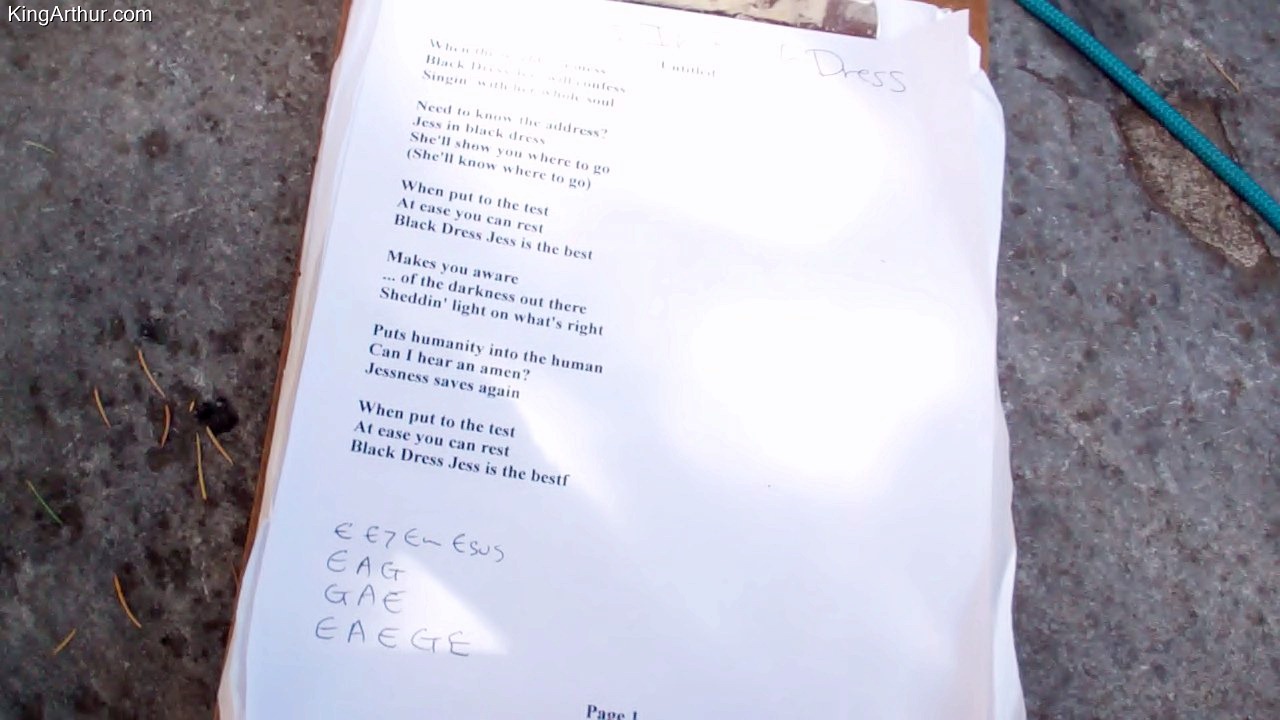 KingArthur.com
Dress
Untitled
When the
Black Dress Jess will confess
Singin' with her whole soul
Need to know the address?
Jess in black dress
She'll show you where to go
(She'll know where to go)
When put to the test
At ease you can rest
Black Dress Jess is the best
Makes you aware
... of the darkness out there
Sheddin' light on what's right
Puts humanity into the human
Can I hear an amen?
Jessness saves again
When put to the test
At ease you can rest
Black Dress Jess is the bestf
E E7 Em Esus
E A G
G A E
E A E G E
Page 1